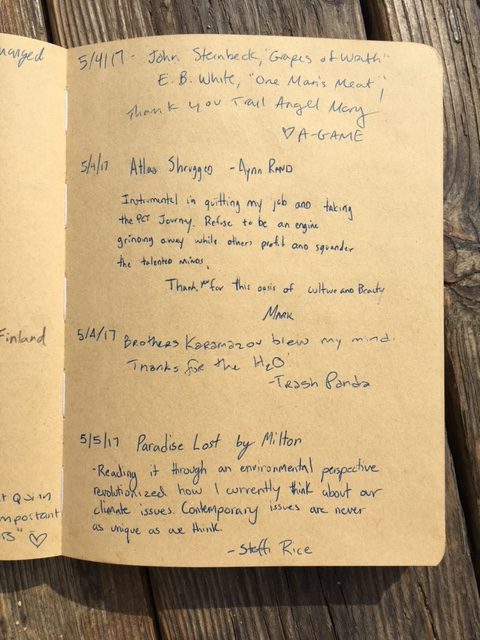 hanged
Finland
t Quinn
mportant
rs" ♡
5/4/17 - John Steinbeck, "Grapes of Wrath"
E. B. White, "One Man's Meat"!
Thank you Trail Angel Mary
♡ A-GAME
5/4/17 Atlas Shrugged - Aynn Rand
Instrumental in quitting my job and taking
the PCT Journey. Refuse to be an engine
grinding away while others profit and squander
the talented minds.
Thank you for this oasis of culture and Beauty
Mark
5/4/17 Brothers Karamazov blew my mind.
Thanks for the H2O!
- Trash Panda
5/5/17 Paradise Lost by Milton
- Reading it through an environmental perspective
revolutionized how I currently think about our
climate issues. Contemporary issues are never
as unique as we think.
- Steffi Rice